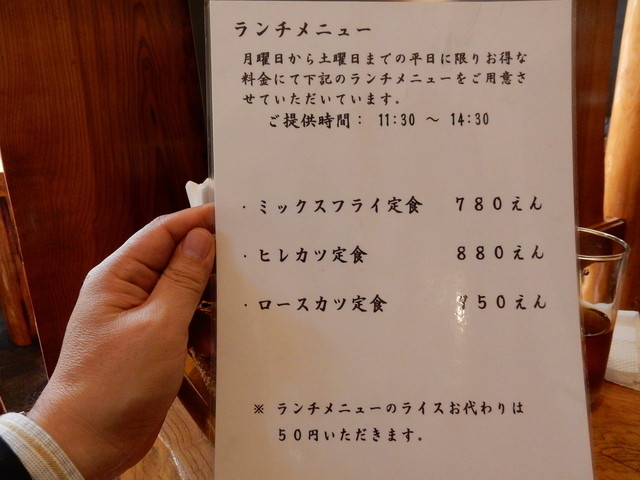 ランチメニュー
月曜日から土曜日までの平日に限りお得な
料金にて下記のランチメニューをご用意さ
せていただいています。
ご提供時間： 11:30 ～ 14:30
・ミックスフライ定食 ７８０えん
・ヒレカツ定食 ８８０えん
・ロースカツ定食
※ ランチメニューのライスお代わりは
５０円いただきます。